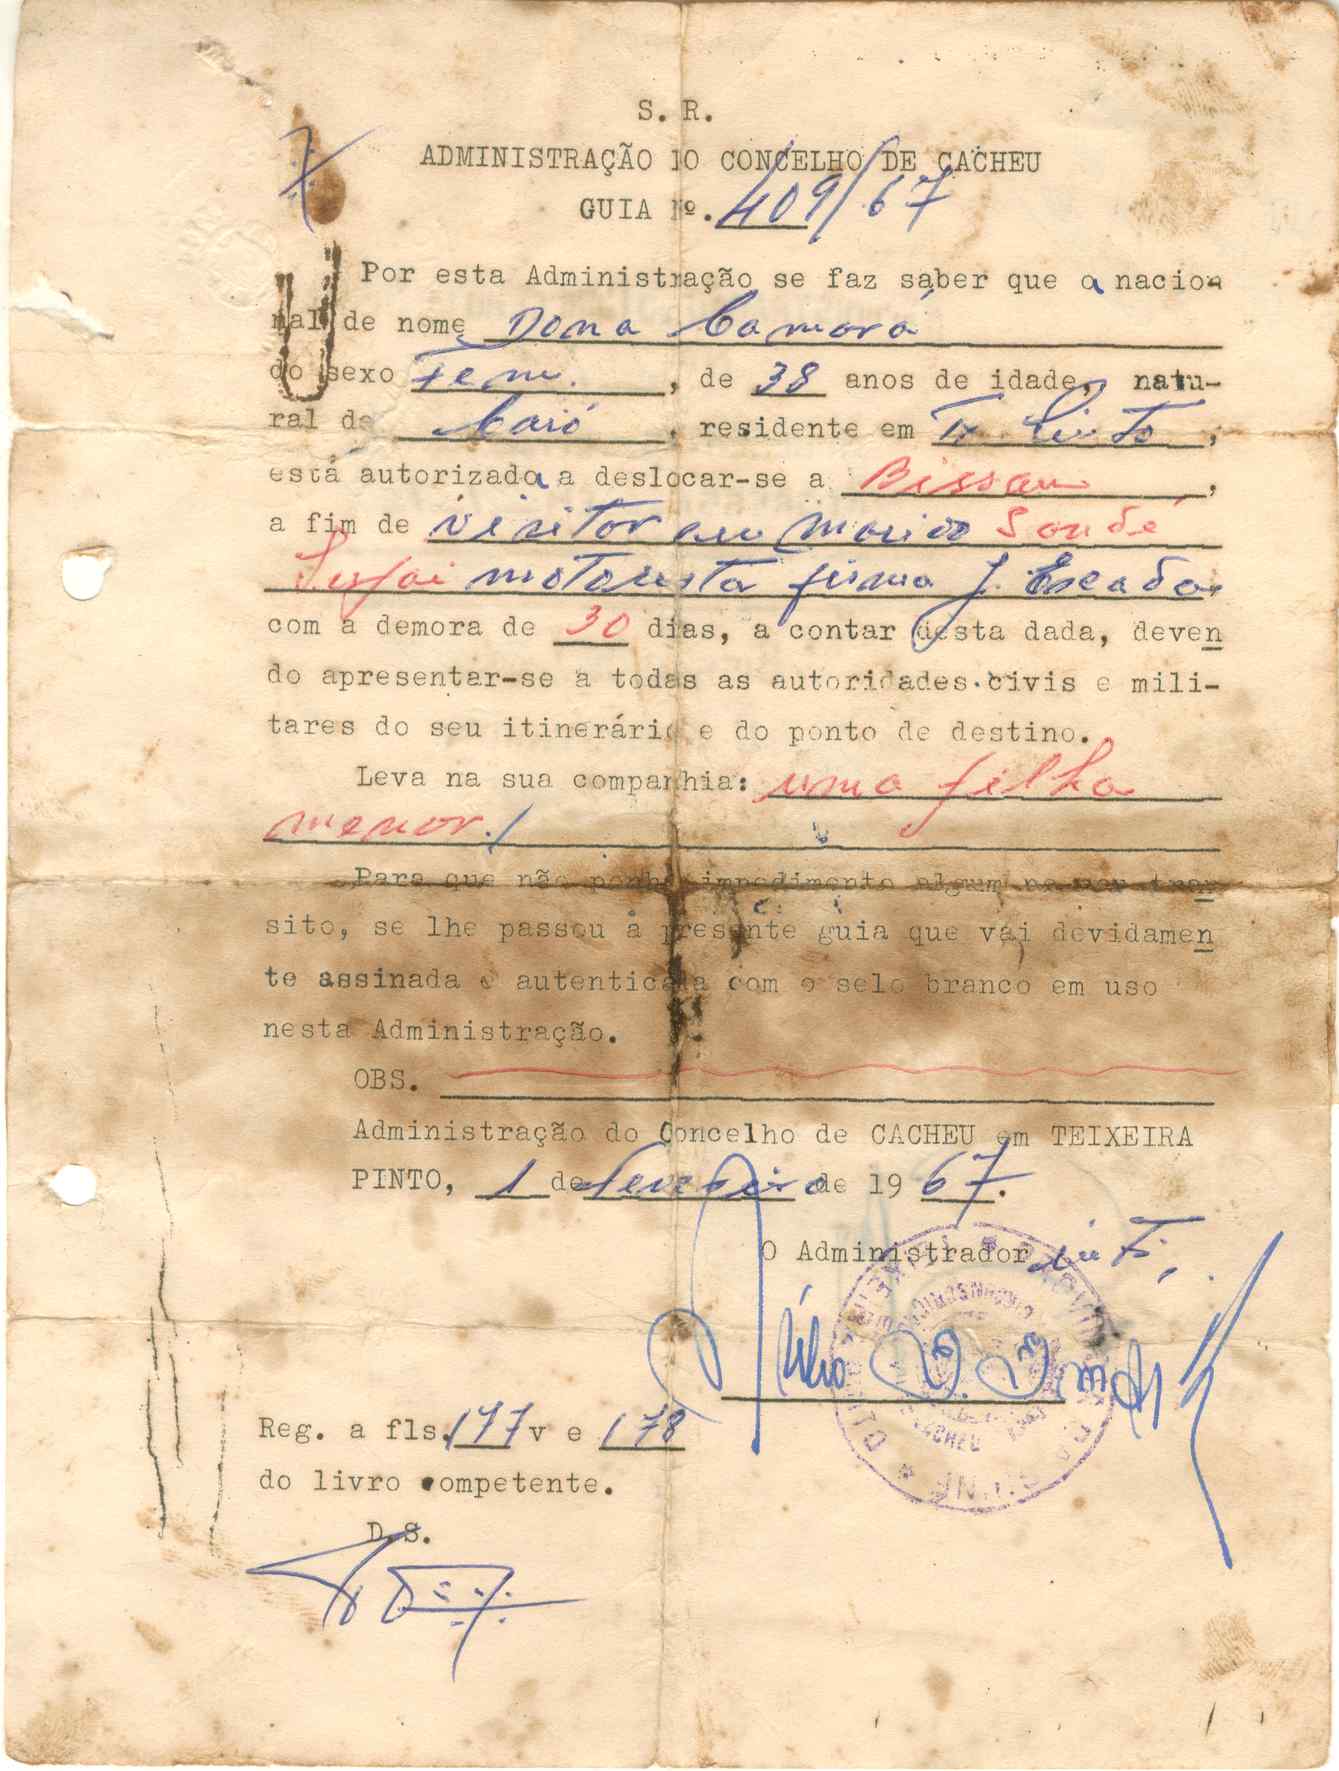 S. R.
ADMINISTRAÇÃO DO CONCELHO DE CACHEU
GUIA Nº. 409/67
Por esta Administração se faz saber que a nacio-
nal de nome Dona Camará
do sexo Fem. , de 38 anos de idade, natu-
ral de Caió , residente em Tx. Pinto ,
está autorizada a deslocar-se a Bissau ,
a fim de visitar seu marido
motorista firma J.
com a demora de 30 dias, a contar desta dada, deven
do apresentar-se a todas as autoridades civis e mili-
tares do seu itinerário e do ponto de destino.
Leva na sua companhia: uma filha
menor./
Para que não ponha impedimento algum no seu tran
sito, se lhe passou a presente guia que vai devidamen
te assinada e autenticada com o selo branco em uso
nesta Administração.
OBS.
Administração do Concelho de CACHEU em TEIXEIRA
PINTO, 1 de Fevereiro de 19 67.
O Administrador
Reg. a fls. 177 v e 178
do livro competente.
D. S.